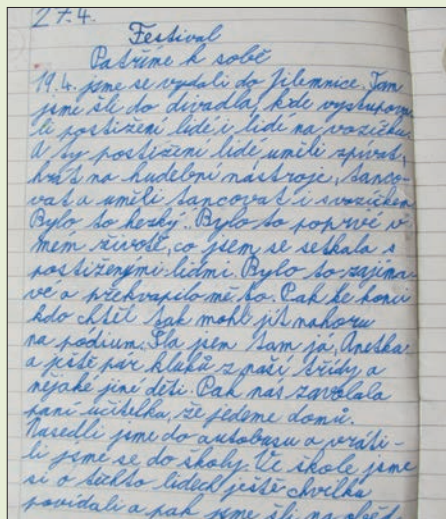 27.4.
Festival
Patříme k sobě
19.4. jsme se vydali do Jilemnice. Tam
jsme šli do divadla, kde vystupova
li postižení lidé i lidé na vozíčku.
A ty postižení lidé uměli zpívat,
hrát na hudební nástroje, tanco-
vat a uměli tancovat i s vozíčkem
Bylo to hezký. Bylo to poprvé v
mém životě, co jsem se setkala s
postiženými lidmi. Bylo to zajíma
vé a překvapilo mě to. Pak ke konci
kdo chtěl tak mohl jít nahoru
na pódium. Šla jsem tam já, Anetka
a ještě pár kluků z naší třídy a
nějaké jiné děti. Pak nás zavolala
paní učitelka, že jedeme domů.
Nasedli jsme do autobusu a vráti-
li jsme se do školy. Ve škole jsme
si o těchto lidech ještě chvilku
povídali a pak jsme šli na oběd.